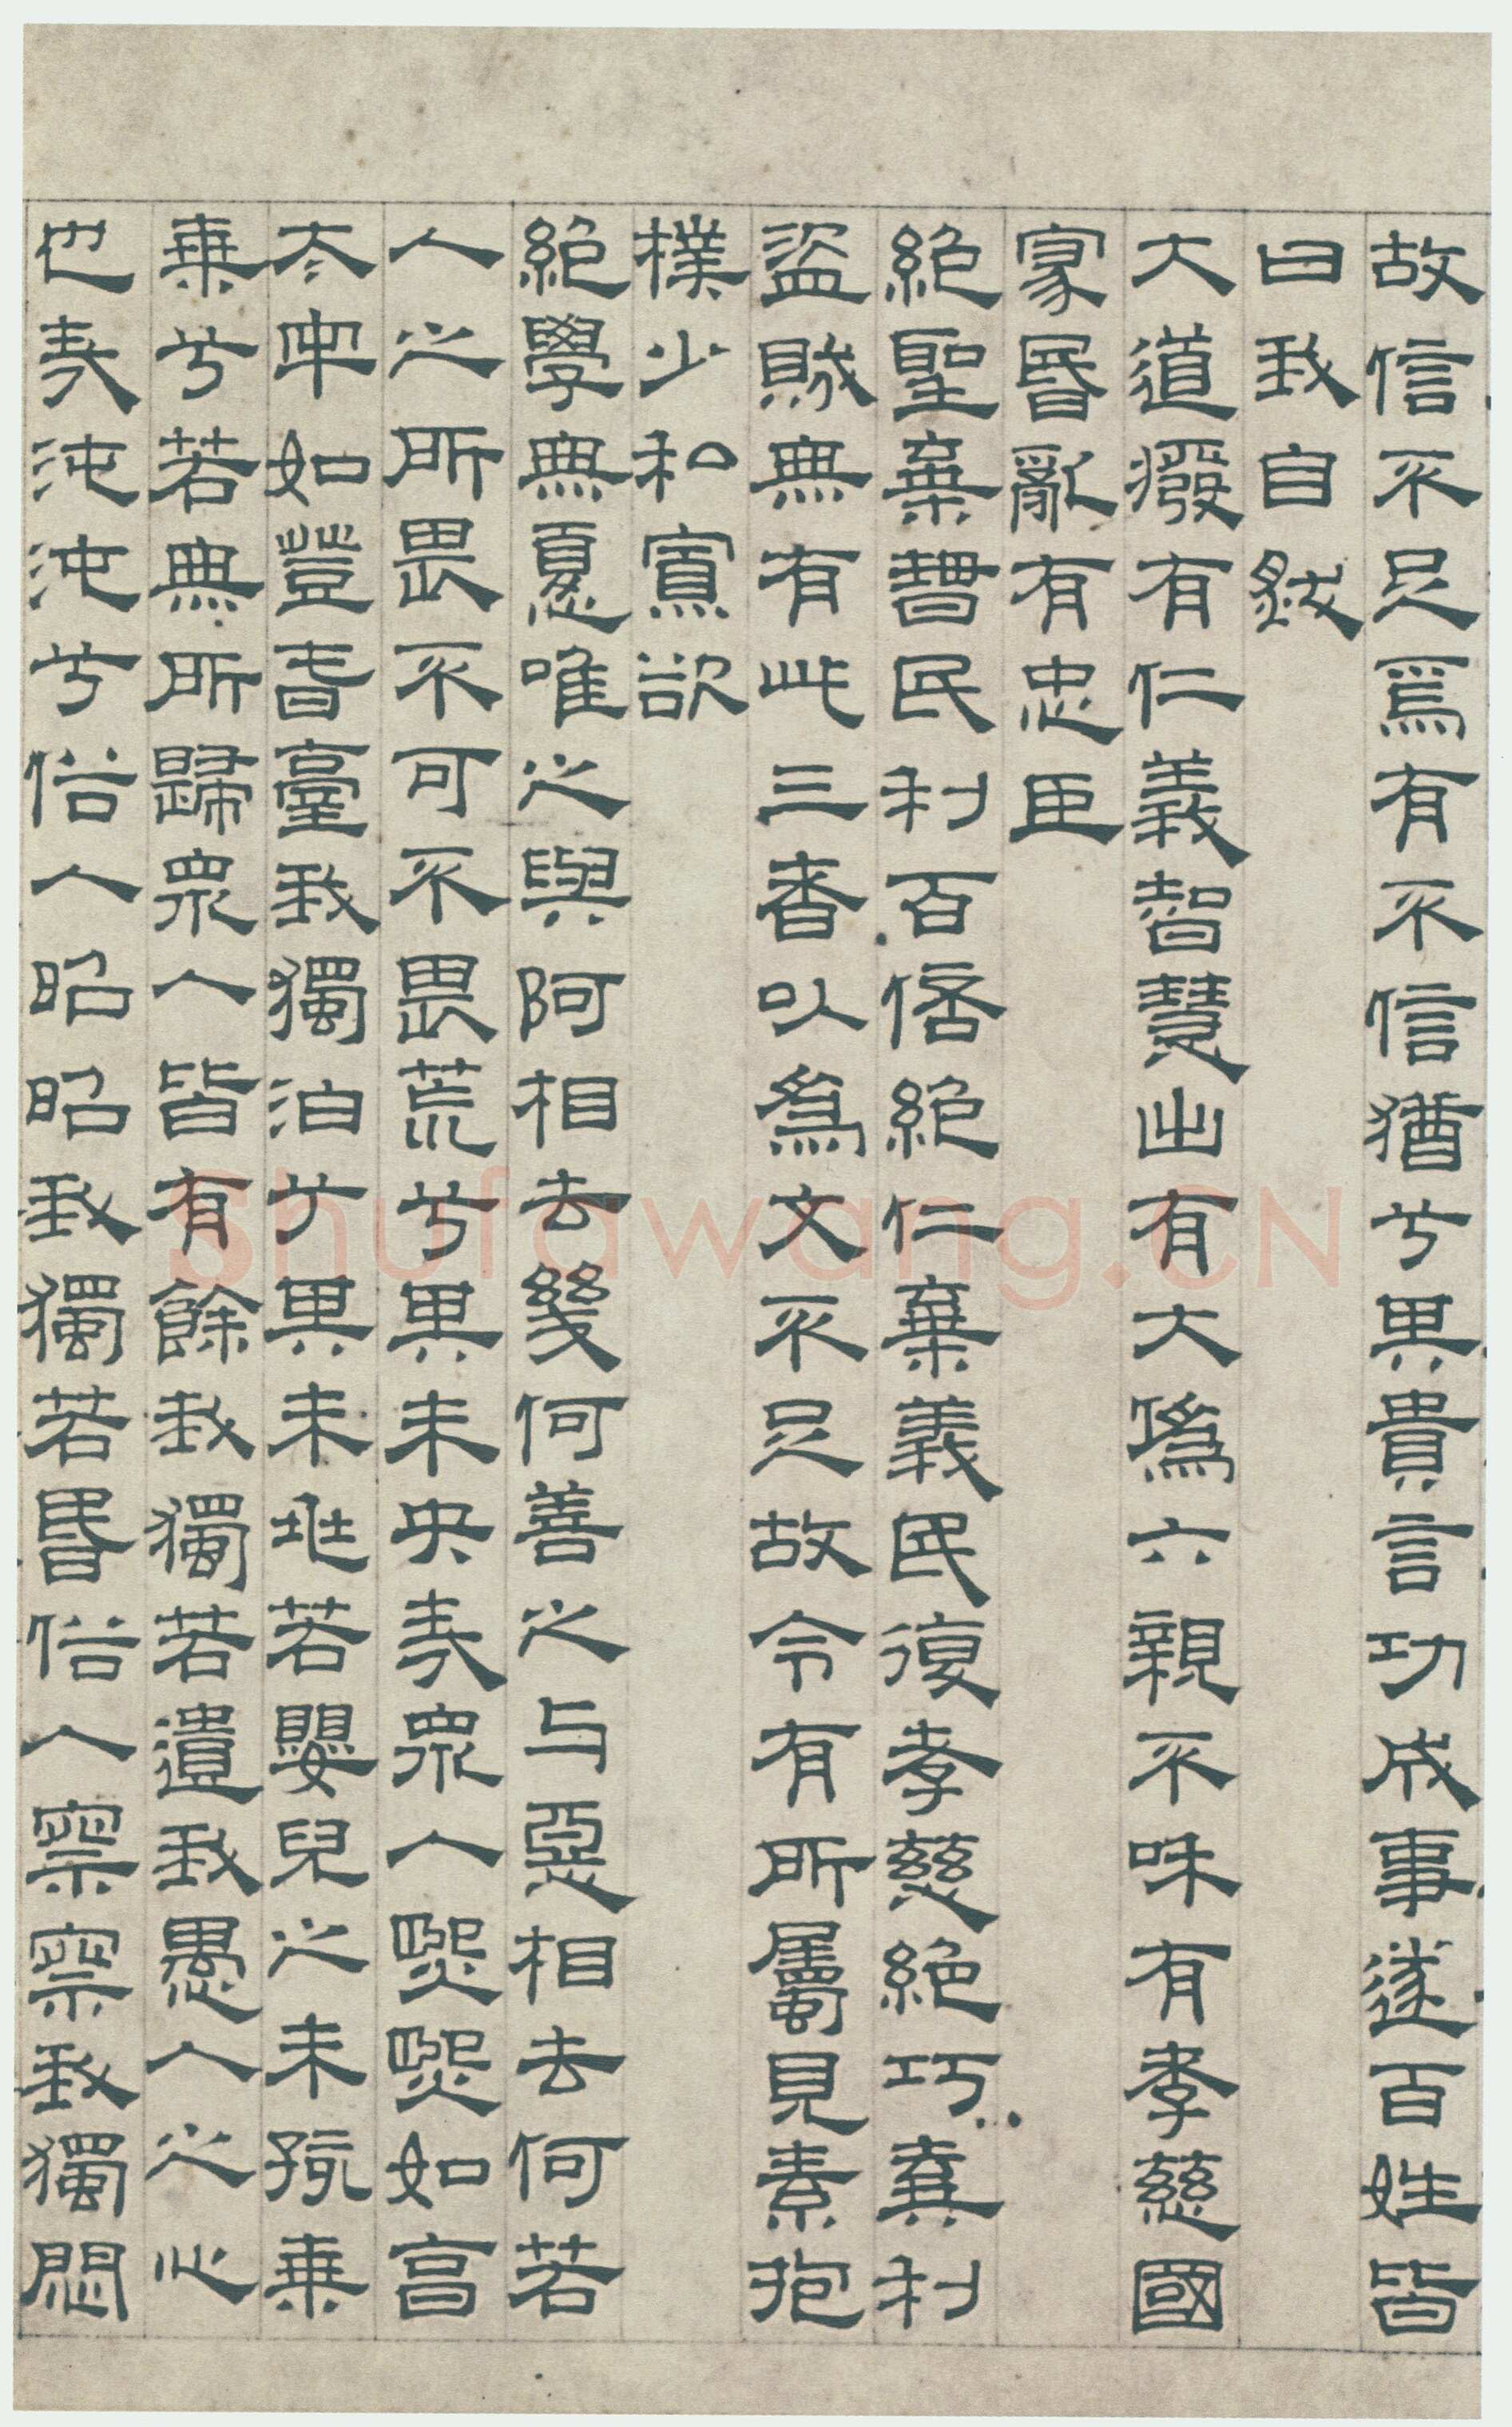 故信不足焉有不信猶兮其貴言功成事遂百姓皆
曰我自然
大道癈有仁義智慧出有大偽六親不咊有孝慈國
家昬亂有忠臣
絶聖棄智民利百倍絶仁棄義民復孝慈絶巧棄利
盜賊無有此三者以為文不足故令有所屬見素抱
樸少私寡欲
絶學無憂唯之與阿相去幾何善之与惡相去何若
人之所畏不可不畏荒兮其未央哉衆人熙熙如享
太牢如登春臺我獨泊兮其未兆若嬰兒之未孩乗
乗兮若無所歸衆人皆有餘我獨若遺我愚人之心
也哉沌沌兮俗人昭昭我獨若昬俗人察察我獨悶
Shufawang.CN